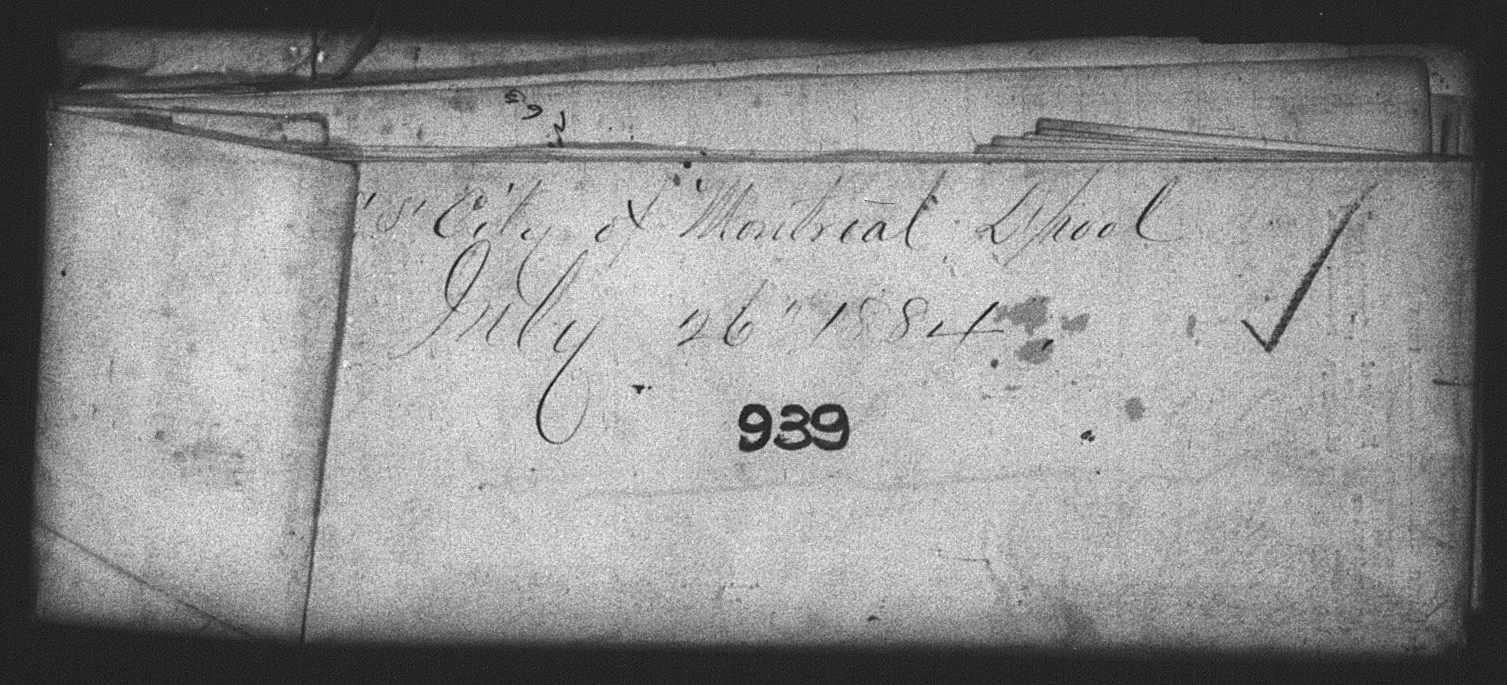 "S" City of Montreal L'pool
July 26" 1884
939